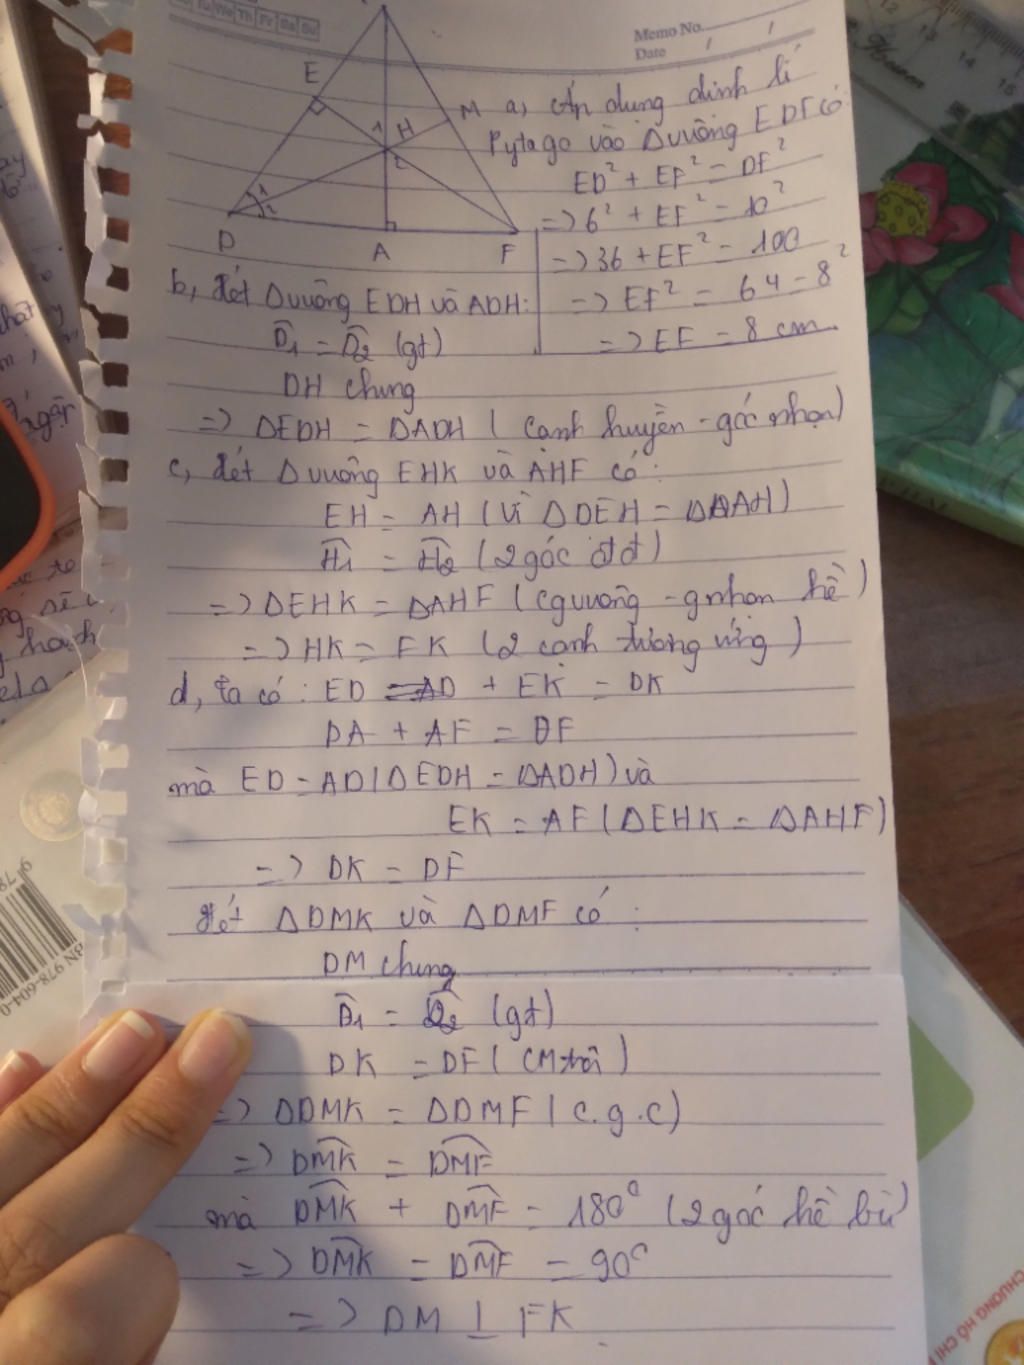 Tu We Th Fr Sa Su
Memo No.
Date / /
E
M
H
1
2
1
2
D
A
F
a, Áp dụng định lí
Pytago vào Δ vuông EDF có
ED² + EF² = DF²
=> 6² + EF² = 10²
=> 36 + EF² = 100
=> EF² = 64 = 8²
=> EF = 8 cm
b, Xét Δ vuông EDH và ADH:
D̂₁ = D̂₂ (gt)
DH chung
=> ΔEDH = ΔADH (cạnh huyền - góc nhọn)
c, Xét Δ vuông EHK và AHF có:
EH = AH (Vì ΔDEH = ΔDAH)
Ĥ₁ = Ĥ₂ (2 góc đđ)
=> ΔEHK = ΔAHF (cgvuông - gnhọn kề)
=> HK = FK (2 cạnh tương ứng)
d, ta có: ED + EK = DK
DA + AF = DF
mà ED = AD (ΔEDH = ΔADH) và
EK = AF (ΔEHK = ΔAHF)
=> DK = DF
Xét ΔDMK và ΔDMF có:
DM chung
D̂₁ = D̂₂ (gt)
DK = DF (CMtrên)
=> ΔDMK = ΔDMF (c.g.c)
=> DMK = DMF
mà DMK + DMF = 180° (2 góc kề bù)
=> DMK = DMF = 90°
=> DM ⊥ FK
12
13
14
15
978-604-0
9 78
CHƯƠNG